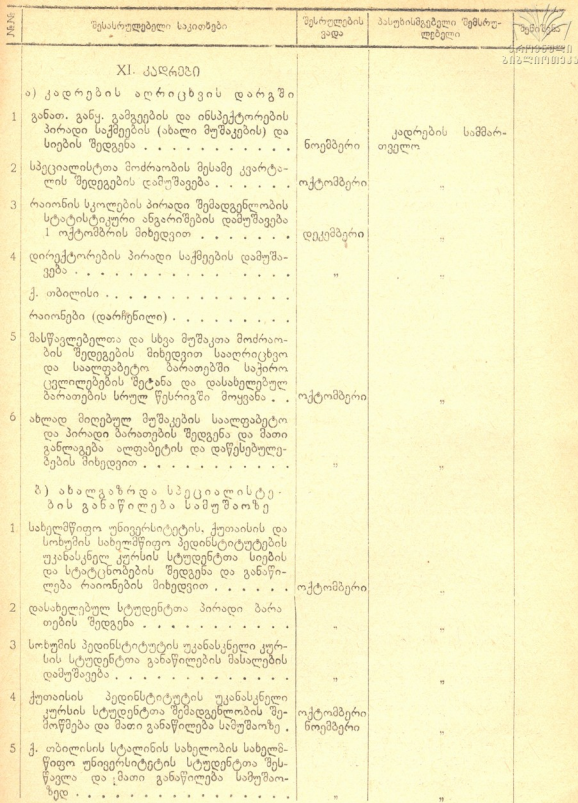 №№ შესასრულებელი საკითხები შესრულების ვადა პასუხისმგებელი შემსრულებელი შენიშვნა
ეროვნული
ბიბლიოთეკა
XI. კადრები
ა) კადრების აღრიცხვის დარგში
1 განათ. განყ. გამგეების და ინსპექტორების
პირადი საქმეების (ახალი მუშაკების) და
სიების შედგენა . . . . . . . . . . . ნოემბერი კადრების სამმართველო
2 სპეციალისტთა მოძრაობის მესამე კვარტა-
ლის შედეგების დამუშავება . . . . . . ოქტომბერი „
3 რაიონის სკოლების პირადი შემადგენლობის
სტატისტიკური ანგარიშების დამუშავება
1 ოქტომბრის მიხედვით . . . . . . . დეკემბერი „
4 დირექტორების პირადი საქმეების დამუშა-
ვება . . . . . . . . . . . . . . . . „ „
ქ. თბილისი . . . . . . . . . . . . .
რაიონები (დარჩენილი) . . . . . . . .
5 მასწავლებელთა და სხვა მუშაკთა მოძრაო-
ბის შედეგების მიხედვით სააღრიცხვო
და საალფაბეტო ბარათებში საჭირო
ცვლილებების შეტანა და დასახელებულ
ბარათების სრულ წესრიგში მოყვანა . . ოქტომბერი „
6 ახლად მიღებულ მუშაკების საალფაბეტო
და პირადი ბარათების შედგენა და მათი
განლაგება ალფაბეტის და დაწესებულე-
ბების მიხედვით . . . . . . . . . . . „ „
ბ) ახალგაზრდა სპეციალისტე-
ბის განაწილება სამუშაოზე
1 სახელმწიფო უნივერსიტეტის, ქუთაისის და
სოხუმის სახელმწიფო პედინსტიტუტების
უკანასკნელ კურსის სტუდენტთა სიების
და სტატცნობების შედგენა და განაწი-
ლება რაიონების მიხედვით . . . . . . ოქტომბერი „
2 დასახელებულ სტუდენტთა პირადი ბარა
თების შედგენა . . . . . . . . . . . „ „
3 სოხუმის პედინსტიტუტის უკანასკნელი კურ-
სის სტუდენტთა განაწილების მასალების
დამუშავება . . . . . . . . . . . . . „ „
4 ქუთაისის პედინსტიტუტის უკანასკნელი
კურსის სტუდენტთა შემადგენლობის შე- ოქტომბერი
მოწმება და მათი განაწილება სამუშაოზე . ნოემბერი „
5 ქ. თბილისის სტალინის სახელობის სახელმ-
წიფო უნივერსიტეტის სტუდენტთა შეს-
წავლა და მათი განაწილება სამუშაო-
ზედ . . . . . . . . . . . . . . . . „ „